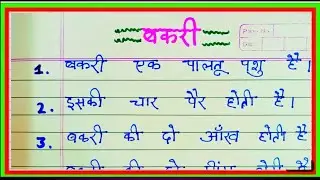 बकरी
1. बकरी एक पालतू पशु है।
2. इसकी चार पैर होती है।
3. बकरी की दो आँख होती है